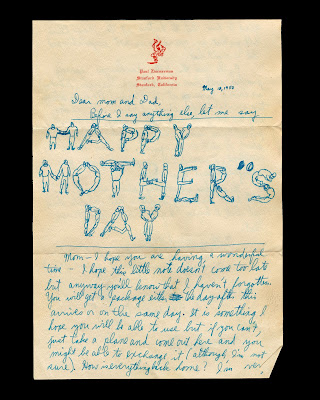 Paul Zimmerman
Stanford University
Stanford, California
May 10, 1952
Dear mom and Dad,
Before I say anything else, let me say
HAPPY
MOTHER'S
DAY
Mom - I hope you are having a wonderful
time - I hope this little note doesn't come too late
but anyway you'll know that I haven't forgotten.
You will get a package either the day after this
arrives or on the same day. It is something I
hope you will be able to use but if you can't,
just take a plane and come out here and you
might be able to exchange it (although I'm not
sure). How is everything back home? I'm